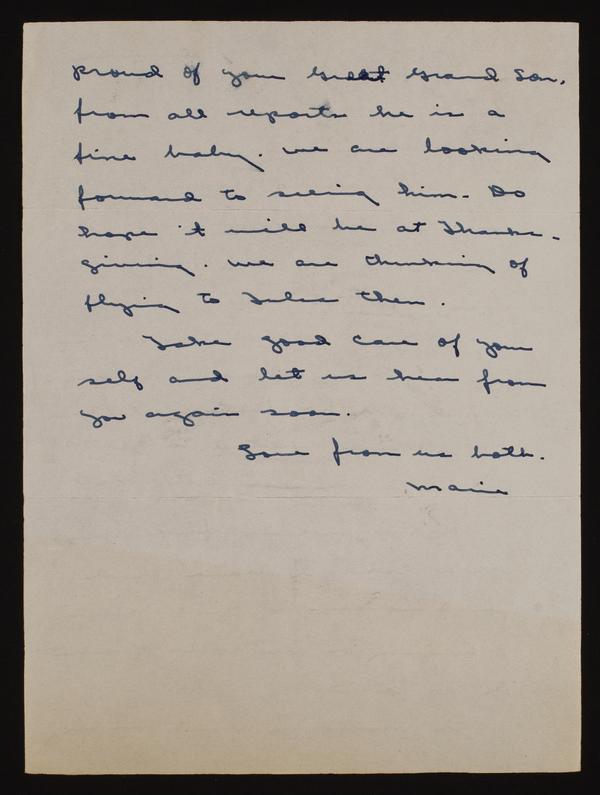 proud of your Great Grand Son.
from all reports he is a
fine baby. we are looking
forward to seeing him. Do
hope it will be at Thanks-
giving. we are thinking of
flying to Tulsa then.
Take good care of your
self and let us hear from
you again soon.
Love from us both.
Marie